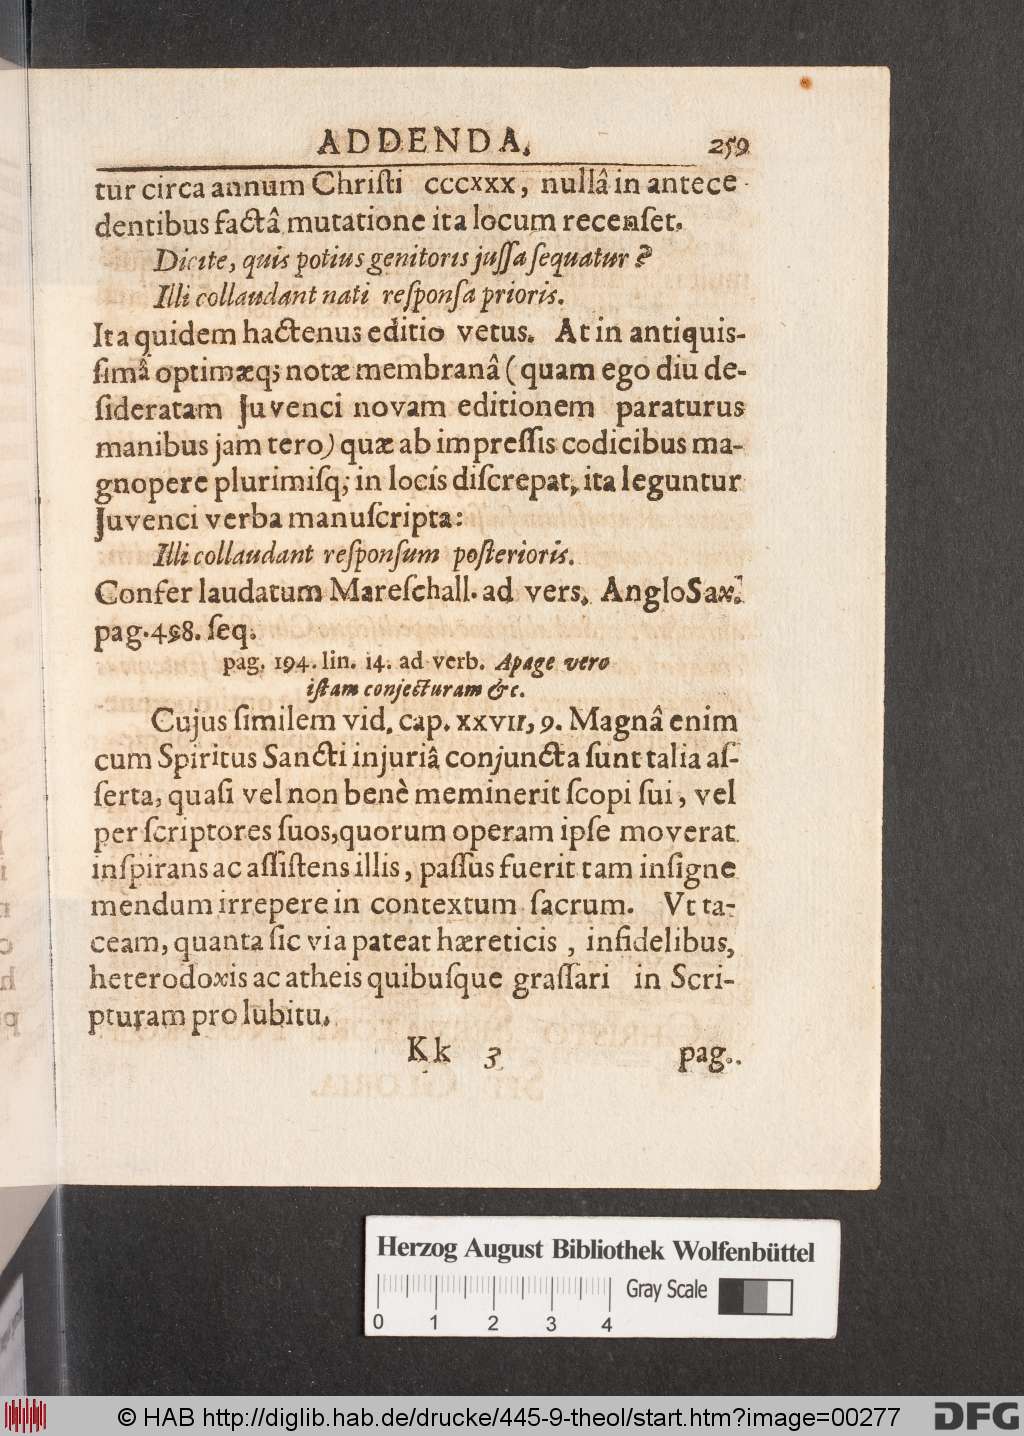 ADDENDA. 259
tur circa annum Chriſti cccxxx, nullâ in antece-
dentibus factâ mutatione ita locum recenſet.
Dicite, quis potius genitoris juſſa ſequatur?
Illi collaudant nati reſponſa prioris.
Ita quidem hactenus editio vetus. At in antiquis-
ſimâ optimæq; notæ membranâ (quam ego diu de-
ſideratam Juvenci novam editionem paraturus
manibus jam tero) quæ ab impreſſis codicibus ma-
gnopere plurimiſq; in locis diſcrepat, ita leguntur
Juvenci verba manuſcripta:
Illi collaudant reſponſum poſterioris.
Confer laudatum Mareſchall. ad vers. AngloSax.
pag. 498. ſeq.
pag. 194. lin. 14. ad verb. Apage vero
iſtam conjecturam &c.
Cujus ſimilem vid. cap. xxvii, 9. Magnâ enim
cum Spiritus Sancti injuriâ conjuncta ſunt talia aſ-
ſerta, quaſi vel non benè meminerit ſcopi ſui, vel
per ſcriptores ſuos, quorum operam ipſe moverat
inſpirans ac aſſiſtens illis, paſſus fuerit tam inſigne
mendum irrepere in contextum ſacrum. Ut ta-
ceam, quanta ſic via pateat hæreticis, infidelibus,
heterodoxis ac atheis quibuſque graſſari in Scri-
pturam pro lubitu.
Kk 3 pag.
Herzog August Bibliothek Wolfenbüttel
Gray Scale
0 1 2 3 4
© HAB http://diglib.hab.de/drucke/445-9-theol/start.htm?image=00277 DFG